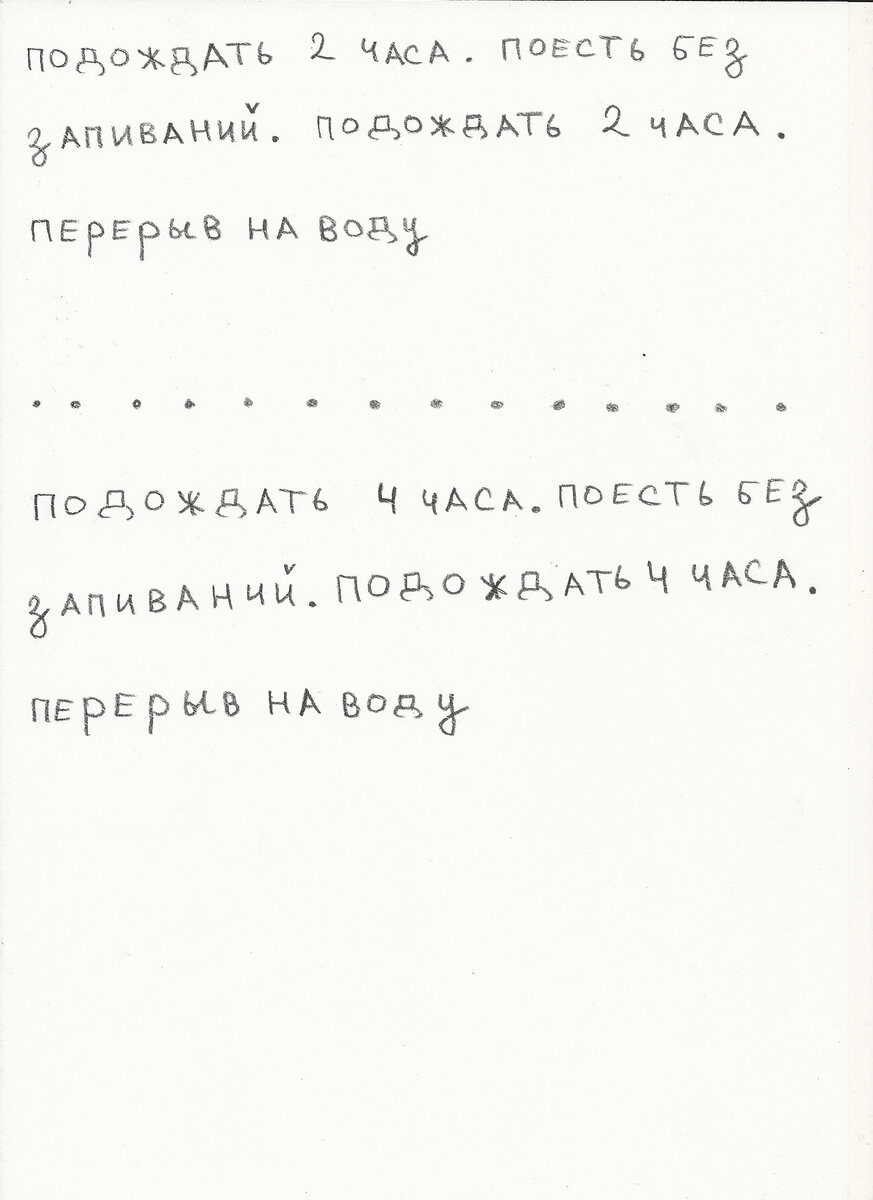 ПОДОЖДАТЬ 2 ЧАСА. ПОЕСТЬ БЕЗ
ЗАПИВАНИЙ. ПОДОЖДАТЬ 2 ЧАСА.
ПЕРЕРЫВ НА ВОДУ
. . . . . . . . . . . . . .
ПОДОЖДАТЬ 4 ЧАСА. ПОЕСТЬ БЕЗ
ЗАПИВАНИЙ. ПОДОЖДАТЬ 4 ЧАСА.
ПЕРЕРЫВ НА ВОДУ